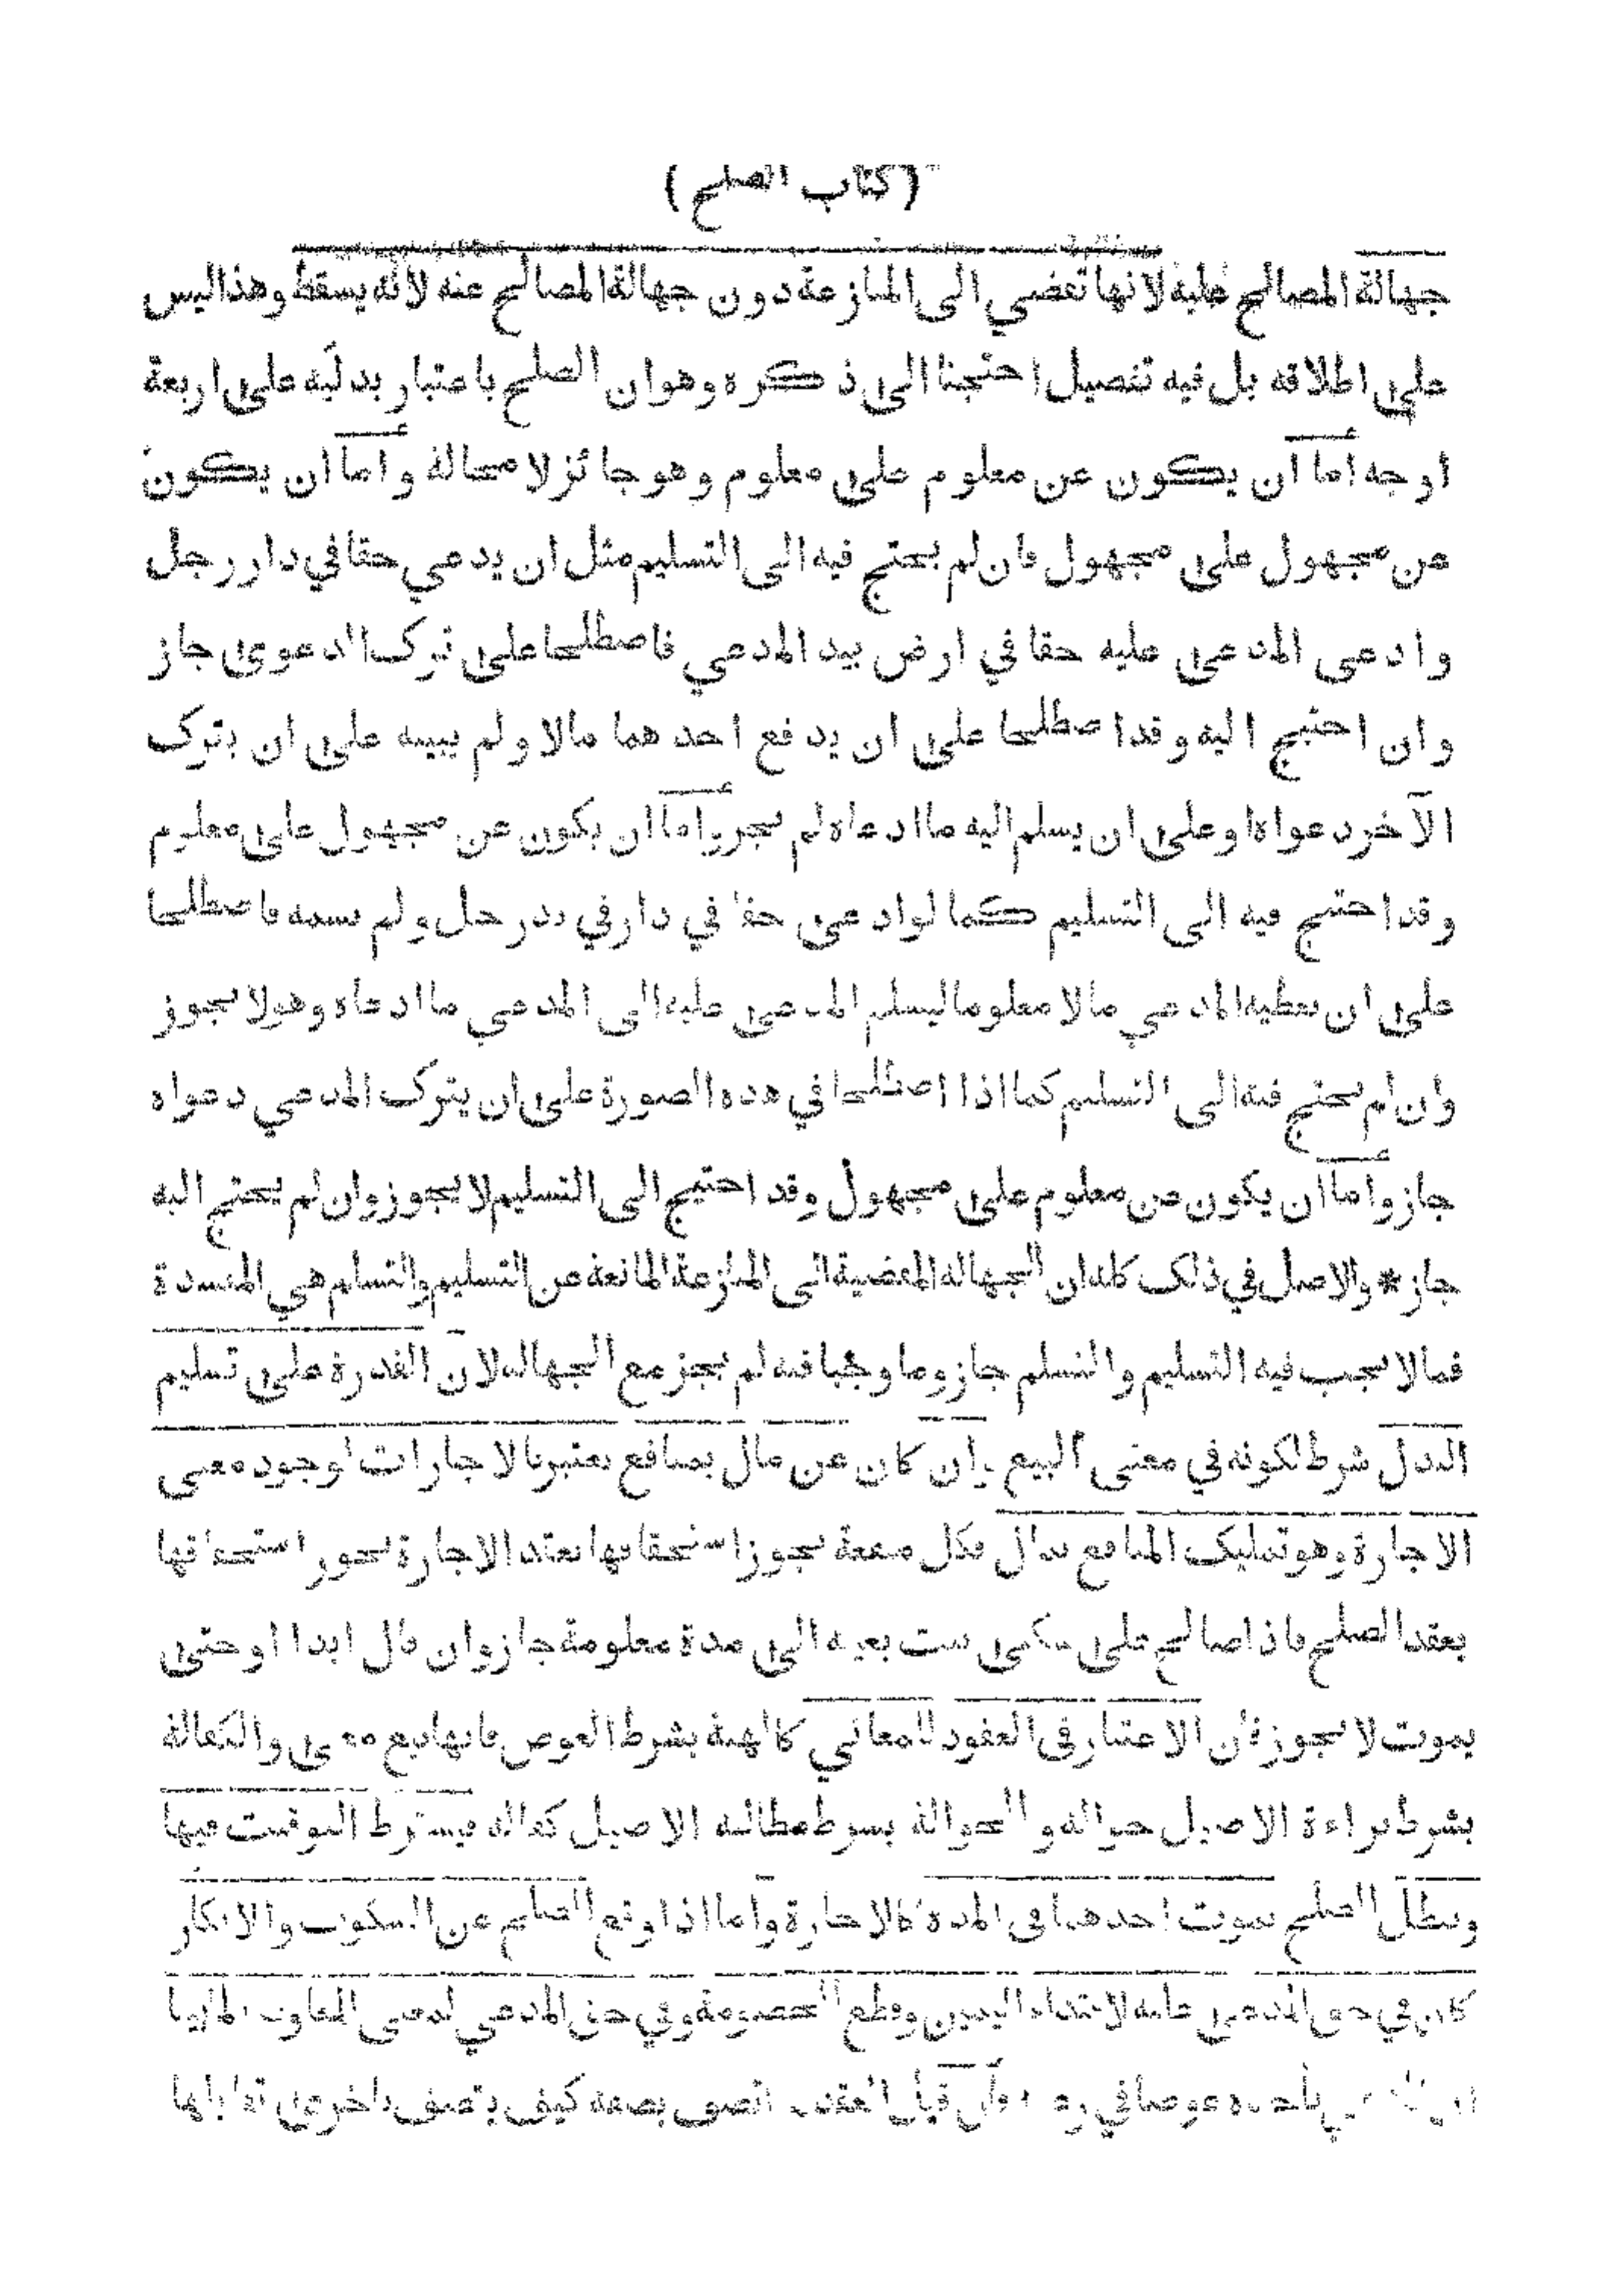 (كتاب الصلح)
جهالة المصالح عليه لانها تفضي الى المنازعة دون جهالة المصالح عنه لانه يسقط وهذا ليس
على اطلاقه بل فيه تفصيل احتجنا الى ذكره وهو ان الصلح باعتبار بدليه على اربعة
اوجه اما ان يكون عن معلوم على معلوم وهو جائز لا محالة واما ان يكون
عن مجهول على مجهول فان لم يحتج فيه الى التسليم مثل ان يدعي حقا في دار رجل
وادعى المدعى عليه حقا في ارض بيد المدعي فاصطلحا على ترك الدعوى جاز
وان احتيج اليه وقد اصطلحا على ان يدفع احدهما مالا ولم يبينه على ان يترك
الآخر دعواه او على ان يسلم اليه ما ادعاه لم يجز واما ان يكون عن مجهول على معلوم
وقد احتيج فيه الى التسليم كما لو ادعى حقا في دار في يد رجل ولم يسمه فاصطلحا
على ان يعطيه المدعي مالا معلوما ليسلم المدعى عليه الى المدعي ما ادعاه وهو لا يجوز
وان لم يحتج فيه الى التسليم كما اذا اصطلحا في هذه الصورة على ان يترك المدعي دعواه
جاز واما ان يكون عن معلوم على مجهول وقد احتيج الى التسليم لا يجوز وان لم يحتج اليه
جاز * والاصل في ذلك كله ان الجهالة المفضية الى المنازعة المانعة عن التسليم والتسلم هي المفسدة
فما لا يجب فيه التسليم والتسلم جاز وما وجبا فيه لم يجز مع الجهالة لان القدرة على تسليم
البدل شرط لكونه في معنى البيع وان كان عن مال بمنافع يعتبر بالاجارات لوجود معنى
الاجارة وهو تمليك المنافع بمال فكل منفعة يجوز استحقاقها بعقد الاجارة يجوز استحقاقها
بعقد الصلح فاذا صالح على سكنى بيت بعينه الى مدة معلومة جاز وان قال ابدا او حتى
يموت لا يجوز فان الاعتبار في العقود للمعاني كالهبة بشرط العوض فانها بيع معنى والكفالة
بشرط براءة الاصيل حوالة والحوالة بشرط مطالبة الاصيل كفالة فيشترط التوقيت فيها
ويبطل الصلح بموت احدهما في المدة كالاجارة واما اذا وقع الصلح عن السكوت والانكار
كان في حق المدعى عليه لافتداء اليمين وقطع الخصومة وفي حق المدعي لمعنى المعاوضة لما بينا
يأخذه عوضا في فان قيل العقد اتصف بصفة كيف يتصف باخرى تقابلها